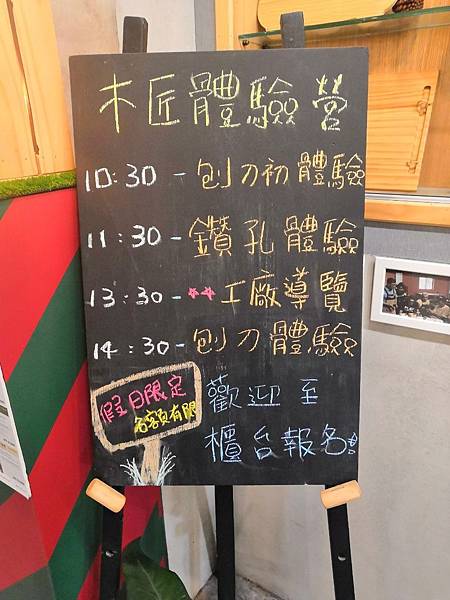 木匠體驗營
10:30 - 刨刀初體驗
11:30 - 鑽孔體驗
13:30 - 工廠導覽
14:30 - 刨刀體驗
假日限定
名額有限
歡迎至
櫃台報名!